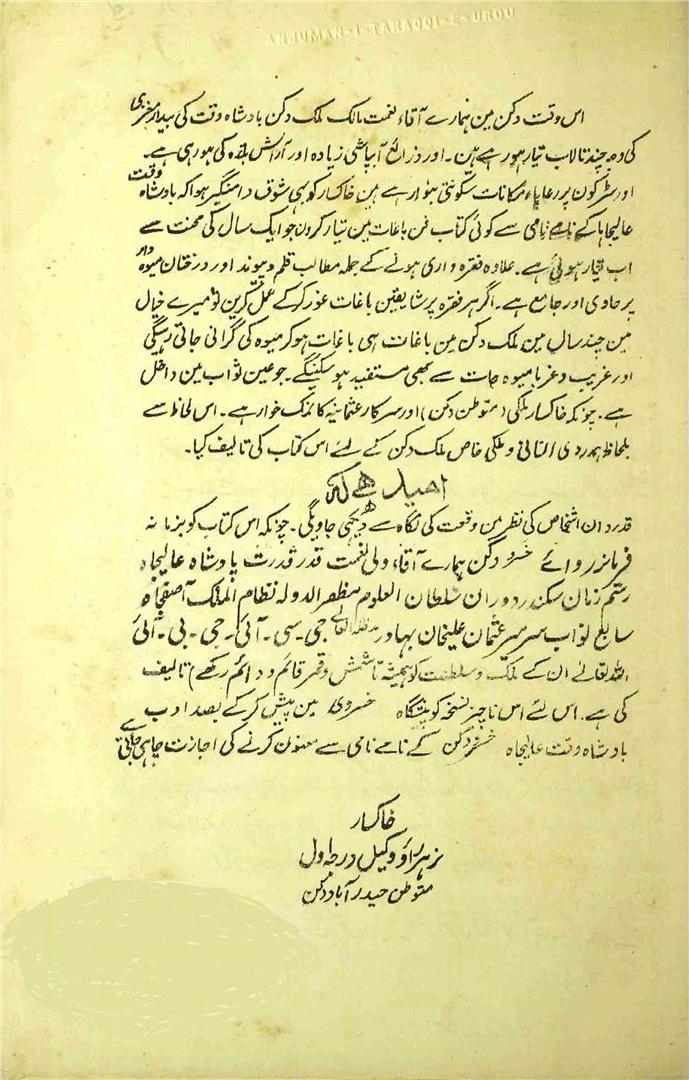 ANJUMAN-I-TARAQQI-E-URDU
اس وقت دکن مین ہمارے آقاء نعمت مالک ملک دکن بادشاہ وقت کی بیدار مغزی
کی وجہ چند تالاب تیار ہو رہے ہین۔ اور ذرائع آبپاشی زیادہ اور آرائش بلدہ کی ہو رہی ہے۔
اور سڑکون پر رعایاء مکانات سکونتی بنوا رہے ہین خاکسار کو بہی شوق دامنگیر ہوا کہ بادشاہ وقت
عالیجاہ کے نامے نامی سے کوئی کتاب فن باغات مین تیار کرون جو ایک سال کی محنت سے
اب تیار ہوئی ہے۔ علاوہ فقرہ واری ہونے کے جملہ مطالب قلم و پیوند اور درختان میوہ دار
پر حاوی اور جامع ہے۔ اگر ہر فقرہ پر شایقین باغات غور کر کے عمل کرین تو میرے خیال
مین چند سال مین ملک دکن مین باغات ہی باغات ہو کر میوہ کی گرانی جاتی رہیگی
اور غریب و غربا میوہ جات سے بھی مستفید ہو سکینگے۔ جو عین ثواب مین داخل
ہے۔ چونکہ خاکسار ملکی (متوطن دکن) اور سرکار عثمانیہ کا نمک خوار ہے۔ اس لحاظ سے
بلحاظ ہمدردی انسانی و ملکی خاص ملک دکن کے لئے اس کتاب کی تالیف کیا۔
امید ہے کہ
قدردان اشخاص کی نظر من وقعت کی نگاہ سے دیکہی جاویگی۔ چونکہ اس کتاب کو بزمانہ
فرمانروائے خسرو دکن ہمارے آقاء ولی نعمت قدر قدرت بادشاہ عالیجاہ
رستم زمان سکندر دوران سلطان العلوم مظفر الدولہ نظام الملک آصفجاہ
سابع نواب سر میر عثمان علیخان بہادر مدظلہ العالی جی۔سی۔آئی۔جی۔بی۔آئی
اللہ تعالے ان کے ملک و سلطنت کو ہمیشہ تا شمس و قمر قائم و دائم رکھے) تالیف
کی ہے۔ اس لئے اس ناچیز نسخہ کو پیشگاہ خسروی مین پیش کر کے بصد ادب
بادشاہ وقت عالیجاہ خسرو دکن کے نامے نامی سے معنون کرنے کی اجازت چاہی جاتی ہے
خاکسار
نرہر راؤ وکیل درجہ اول
متوطن حیدرآباد دکن